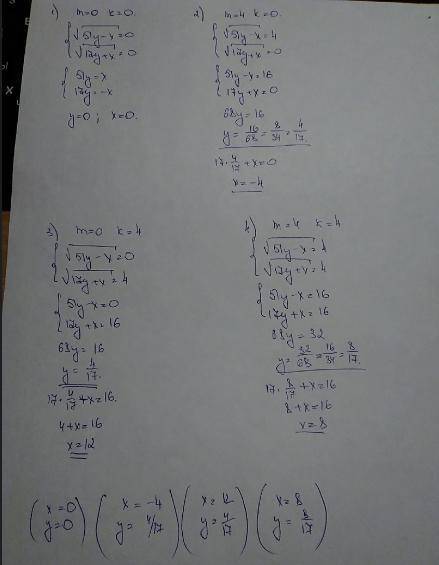 1) m=0 k=0.
{ √51y-x=0
√17y+x=0
{ 51y=x
17y=-x
y=0; x=0.
2) m=4 k=0.
{ √51y-x=4
√17y+x=0
{ 51y-x=16
17y+x=0
68y=16
y=16/68=8/34=4/17.
17·4/17+x=0
x=-4
3) m=0 k=4
{ √51y-x=0
√17y+x=4
{ 51y-x=0
17y+x=16
68y=16
y=4/17.
17·4/17+x=16.
4+x=16
x=12
4) m=4 k=4
{ √51y-x=4
√17y+x=4
{ 51y-x=16
17y+x=16
68y=32
y=32/68=16/34=8/17.
17·8/17+x=16
8+x=16
x=8
(x=0 y=0) (x=-4 y=4/17) (x=12 y=4/17) (x=8 y=8/17)